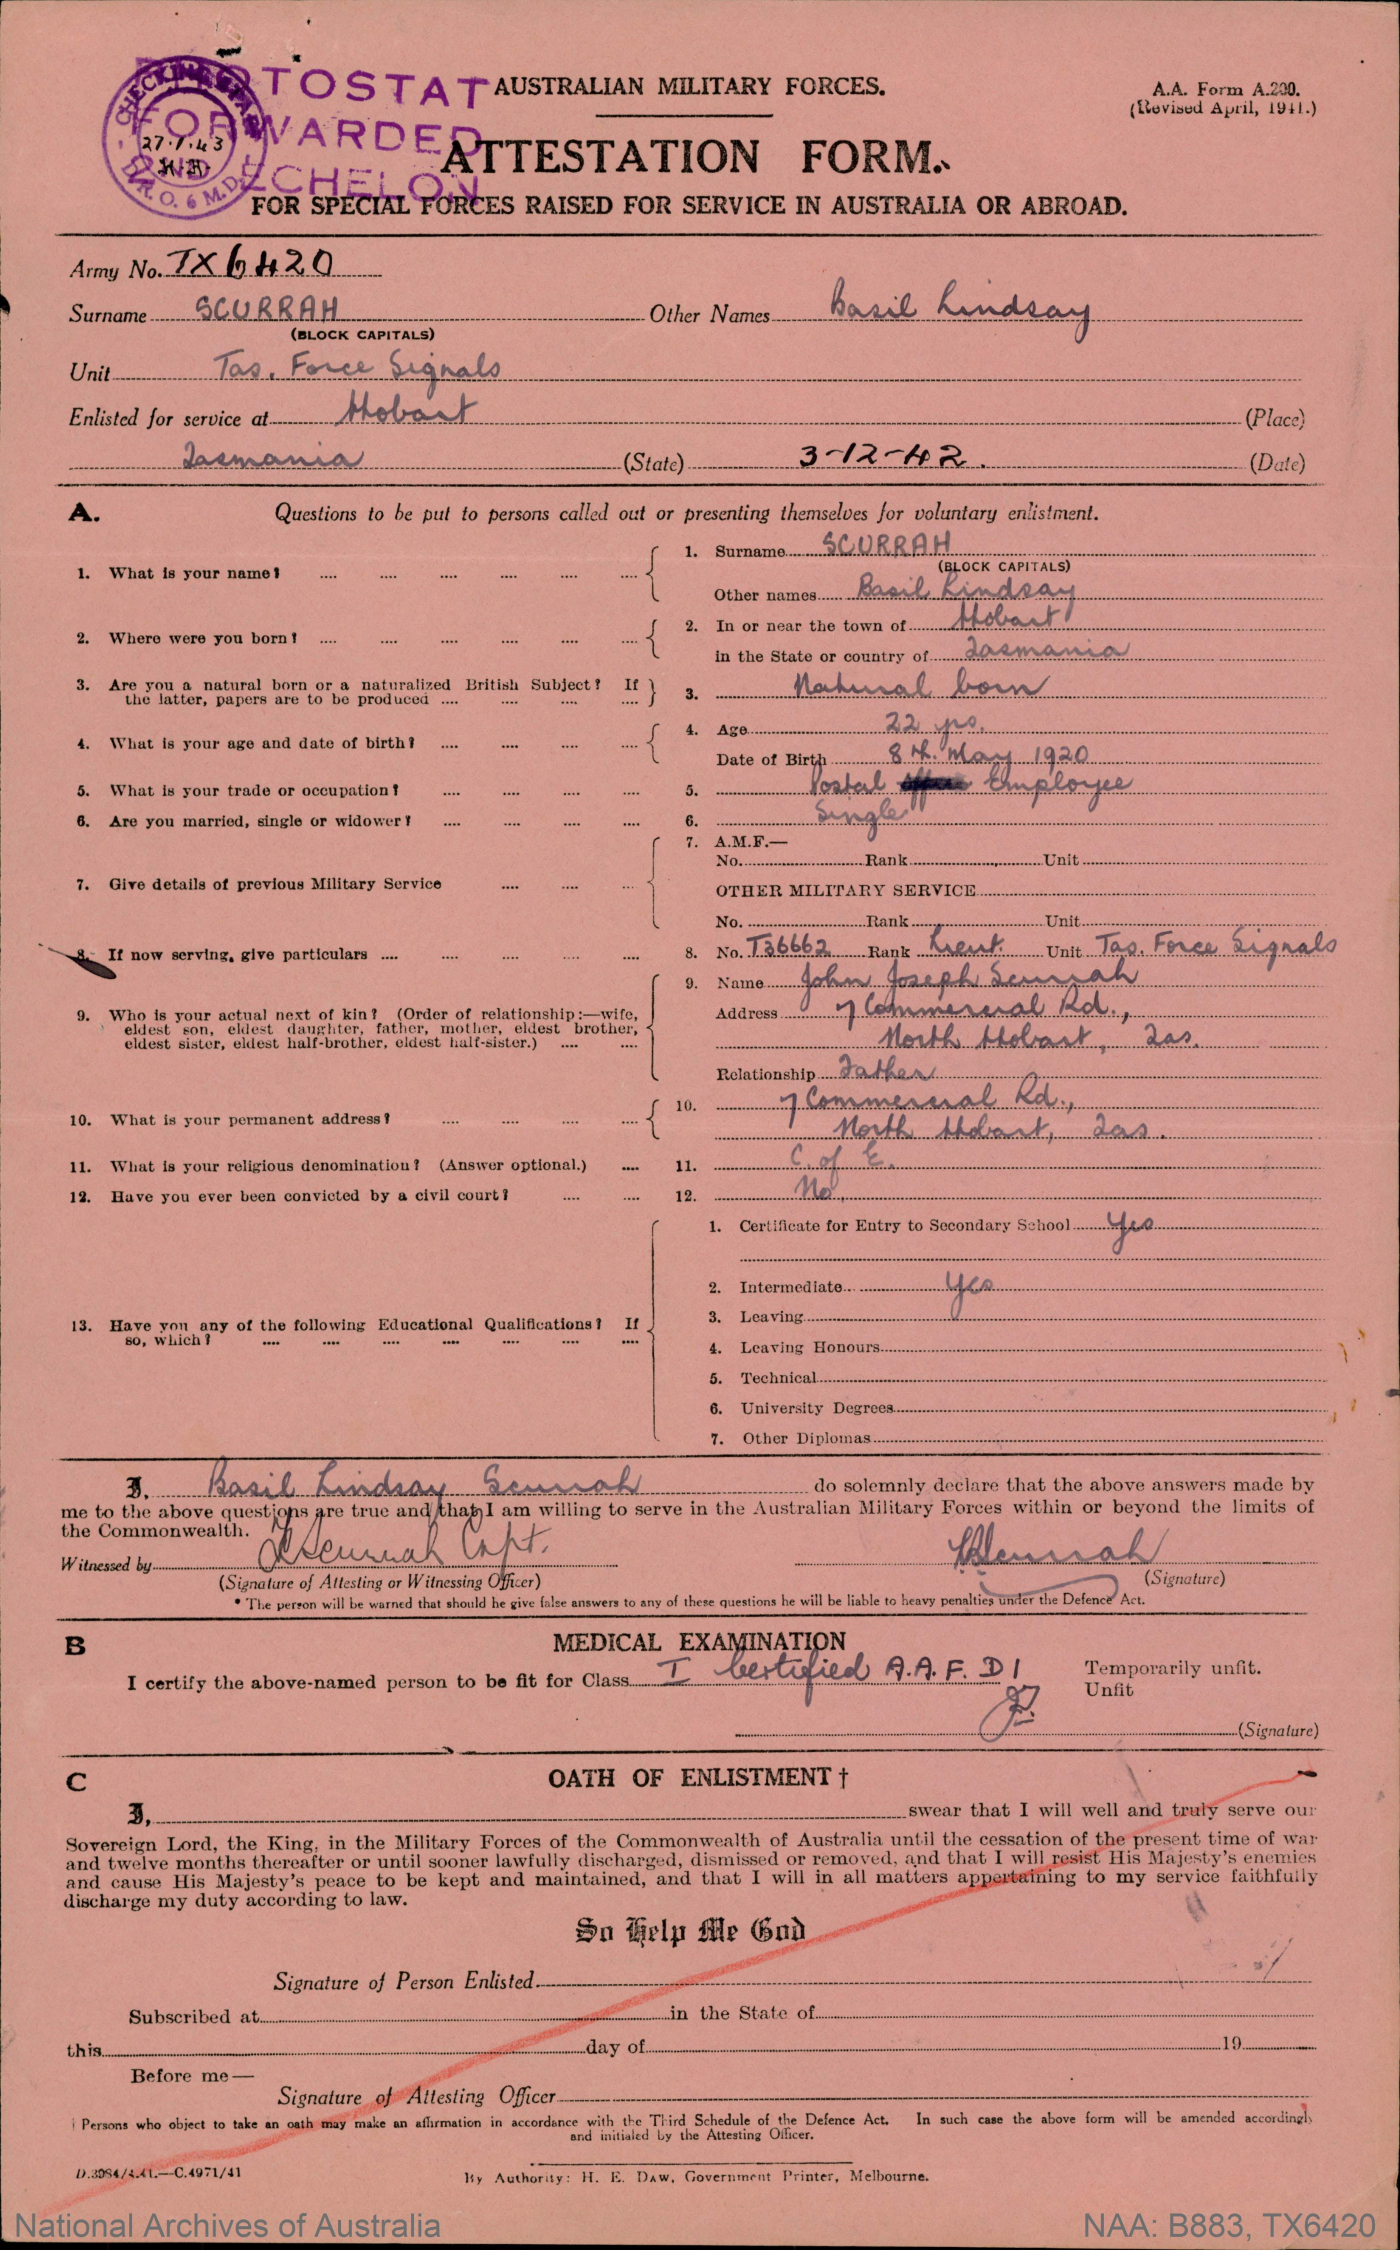 PHOTOSTAT
FORWARDED
2ND ECHELON
CHECKING STAFF
27.1.43
D.R.O. 6 M.D.
AUSTRALIAN MILITARY FORCES.
A.A. Form A.200.
(Revised April, 1941.)
ATTESTATION FORM.
FOR SPECIAL FORCES RAISED FOR SERVICE IN AUSTRALIA OR ABROAD.
Army No. TX6420
Surname SCURRAH Other Names Basil Lindsay
(BLOCK CAPITALS)
Unit Tas. Force Signals
Enlisted for service at Hobart (Place)
Tasmania (State) 3-12-42. (Date)
A. Questions to be put to persons called out or presenting themselves for voluntary enlistment.
1. What is your name? .... .... .... .... .... ....
1. Surname SCURRAH
(BLOCK CAPITALS)
Other names Basil Lindsay
2. Where were you born? .... .... .... .... .... ....
2. In or near the town of Hobart
in the State or country of Tasmania
3. Are you a natural born or a naturalized British Subject? If
the latter, papers are to be produced .... .... .... ....
3. Natural born
4. What is your age and date of birth? .... .... .... ....
4. Age 22 yrs.
Date of Birth 8th. May 1920
5. What is your trade or occupation? .... .... .... ....
5. Postal Employee
6. Are you married, single or widower? .... .... .... ....
6. Single
7. Give details of previous Military Service .... .... ...
7. A.M.F.—
No. Rank Unit
OTHER MILITARY SERVICE
No. Rank Unit
8. If now serving, give particulars .... .... .... .... ....
8. No. T36662 Rank Lieut. Unit Tas. Force Signals
9. Who is your actual next of kin? (Order of relationship:—wife,
eldest son, eldest daughter, father, mother, eldest brother,
eldest sister, eldest half-brother, eldest half-sister.) .... ....
9. Name John Joseph Scurrah
Address 7 Commercial Rd.,
North Hobart, Tas.
Relationship Father
10. What is your permanent address? .... .... .... ....
10. 7 Commercial Rd.,
North Hobart, Tas.
11. What is your religious denomination? (Answer optional.) ....
11. C. of E.
12. Have you ever been convicted by a civil court? .... ....
12. No.
13. Have you any of the following Educational Qualifications? If
so, which? .... .... .... .... .... .... ....
1. Certificate for Entry to Secondary School Yes
2. Intermediate Yes
3. Leaving
4. Leaving Honours
5. Technical
6. University Degrees
7. Other Diplomas
I, Basil Lindsay Scurrah do solemnly declare that the above answers made by
me to the above questions are true and that I am willing to serve in the Australian Military Forces within or beyond the limits of
the Commonwealth.
Witnessed by Scurrah Capt. Scurrah
(Signature of Attesting or Witnessing Officer) (Signature)
* The person will be warned that should he give false answers to any of these questions he will be liable to heavy penalties under the Defence Act.
B MEDICAL EXAMINATION
I certify the above-named person to be fit for Class I Certified A.A.F. D 1 Temporarily unfit.
Unfit
(Signature)
C OATH OF ENLISTMENT †
I, swear that I will well and truly serve our
Sovereign Lord, the King, in the Military Forces of the Commonwealth of Australia until the cessation of the present time of war
and twelve months thereafter or until sooner lawfully discharged, dismissed or removed, and that I will resist His Majesty's enemies
and cause His Majesty's peace to be kept and maintained, and that I will in all matters appertaining to my service faithfully
discharge my duty according to law.
So Help Me God
Signature of Person Enlisted
Subscribed at in the State of
this day of 19
Before me—
Signature of Attesting Officer
† Persons who object to take an oath may make an affirmation in accordance with the Third Schedule of the Defence Act. In such case the above form will be amended accordingly
and initialed by the Attesting Officer.
D.3984/4.41.—C.4971/41
By Authority: H. E. DAW, Government Printer, Melbourne.
National Archives of Australia
NAA: B883, TX6420